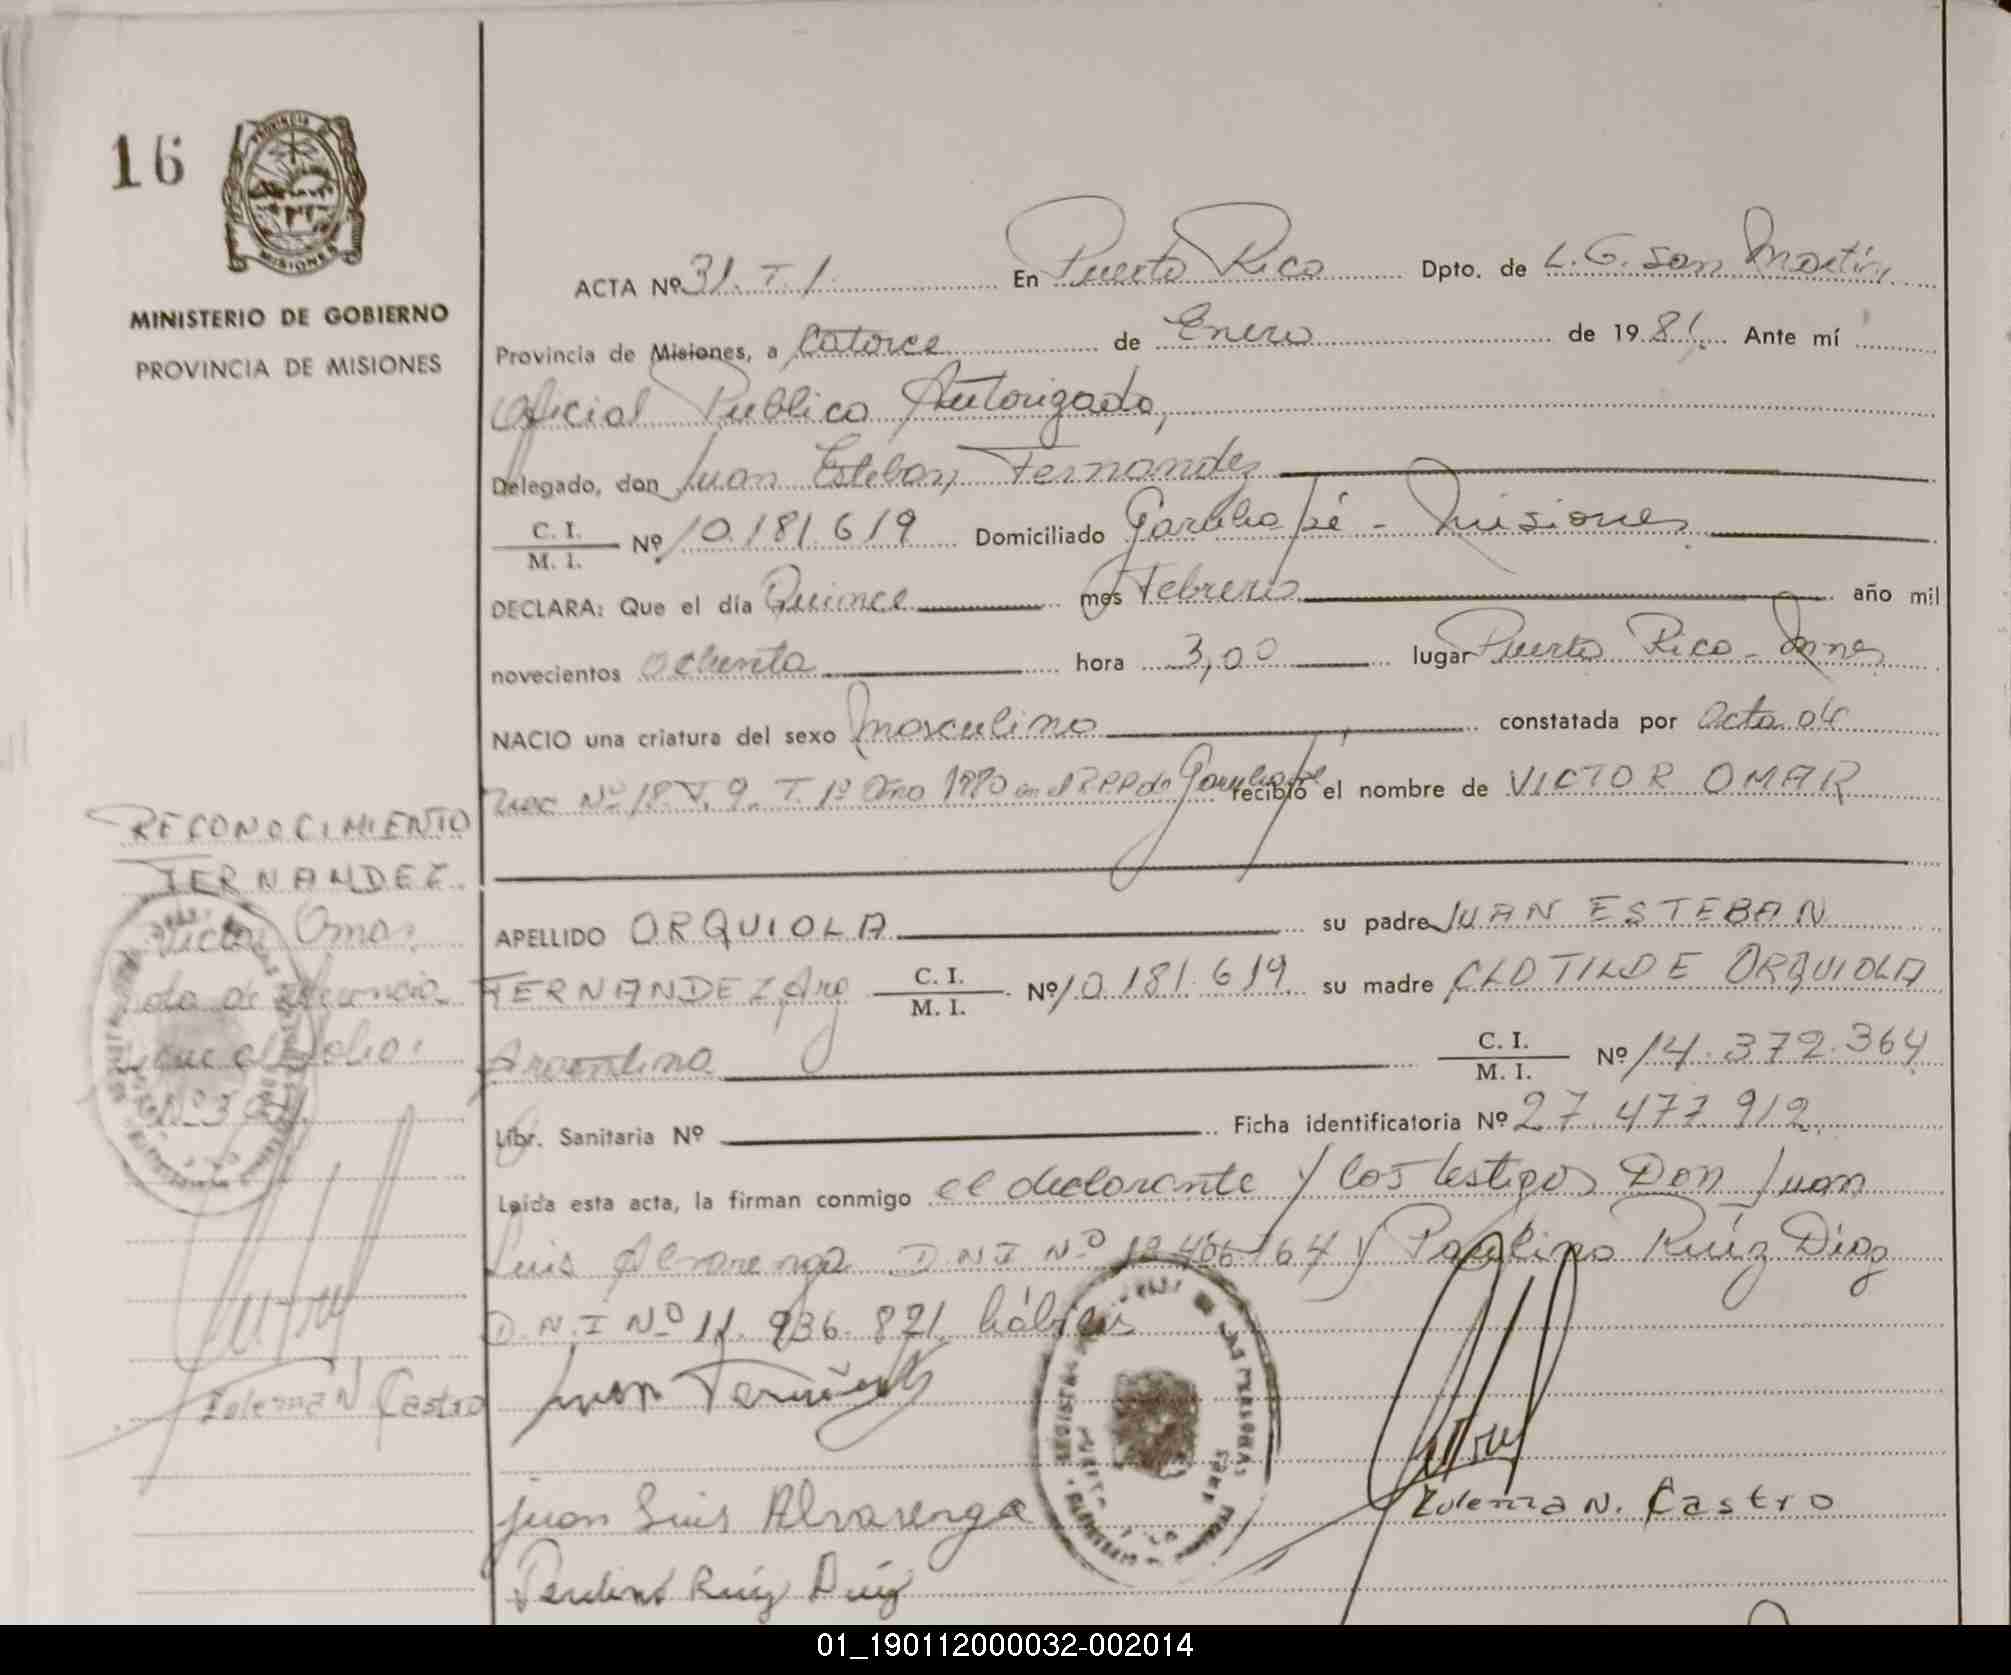 16
PROVINCIA DE
MISIONES
MINISTERIO DE GOBIERNO
PROVINCIA DE MISIONES
ACTA Nº 31. T. 1. En Puerto Rico Dpto. de L. G. San Martín,
Provincia de Misiones, a Catorce de Enero de 1981. Ante mí
Oficial Publico Autorizado,
Delegado, don Juan Esteban Fernandez
C. I. / M. I. Nº 10.181.619 Domiciliado Garuhapé - Misiones
DECLARA: Que el día Quince mes Febrero año mil
novecientos ochenta hora 3,00 lugar Puerto Rico - Mnes
NACIO una criatura del sexo masculino constatada por Acta de
Nac Nº 18. V. 9. T. 1º Año 1980 en el RPP de Garuhapé, recibió el nombre de VICTOR OMAR
APELLIDO ORQUIOLA su padre JUAN ESTEBAN
FERNANDEZ Arg C. I. / M. I. Nº 10.181.619 su madre CLOTILDE ORQUIOLA
Argentina C. I. / M. I. Nº 14.372.364
Libr. Sanitaria Nº Ficha identificatoria Nº 27.477.912.
Leída esta acta, la firman conmigo el declarante y los testigos Don Juan
Luis Alvarenga D.N.I Nº y Paulino Ruíz Díaz
D.N.I Nº 11.936.821. hábiles
Juan Fernández
Juan Luis Alvarenga
Paulino Ruíz Díaz
Zulema N. Castro
RECONOCIMIENTO
FERNANDEZ
Victor Omar
Zulema N Castro
REGISTRO DE LAS PERSONAS
01_190112000032-002014